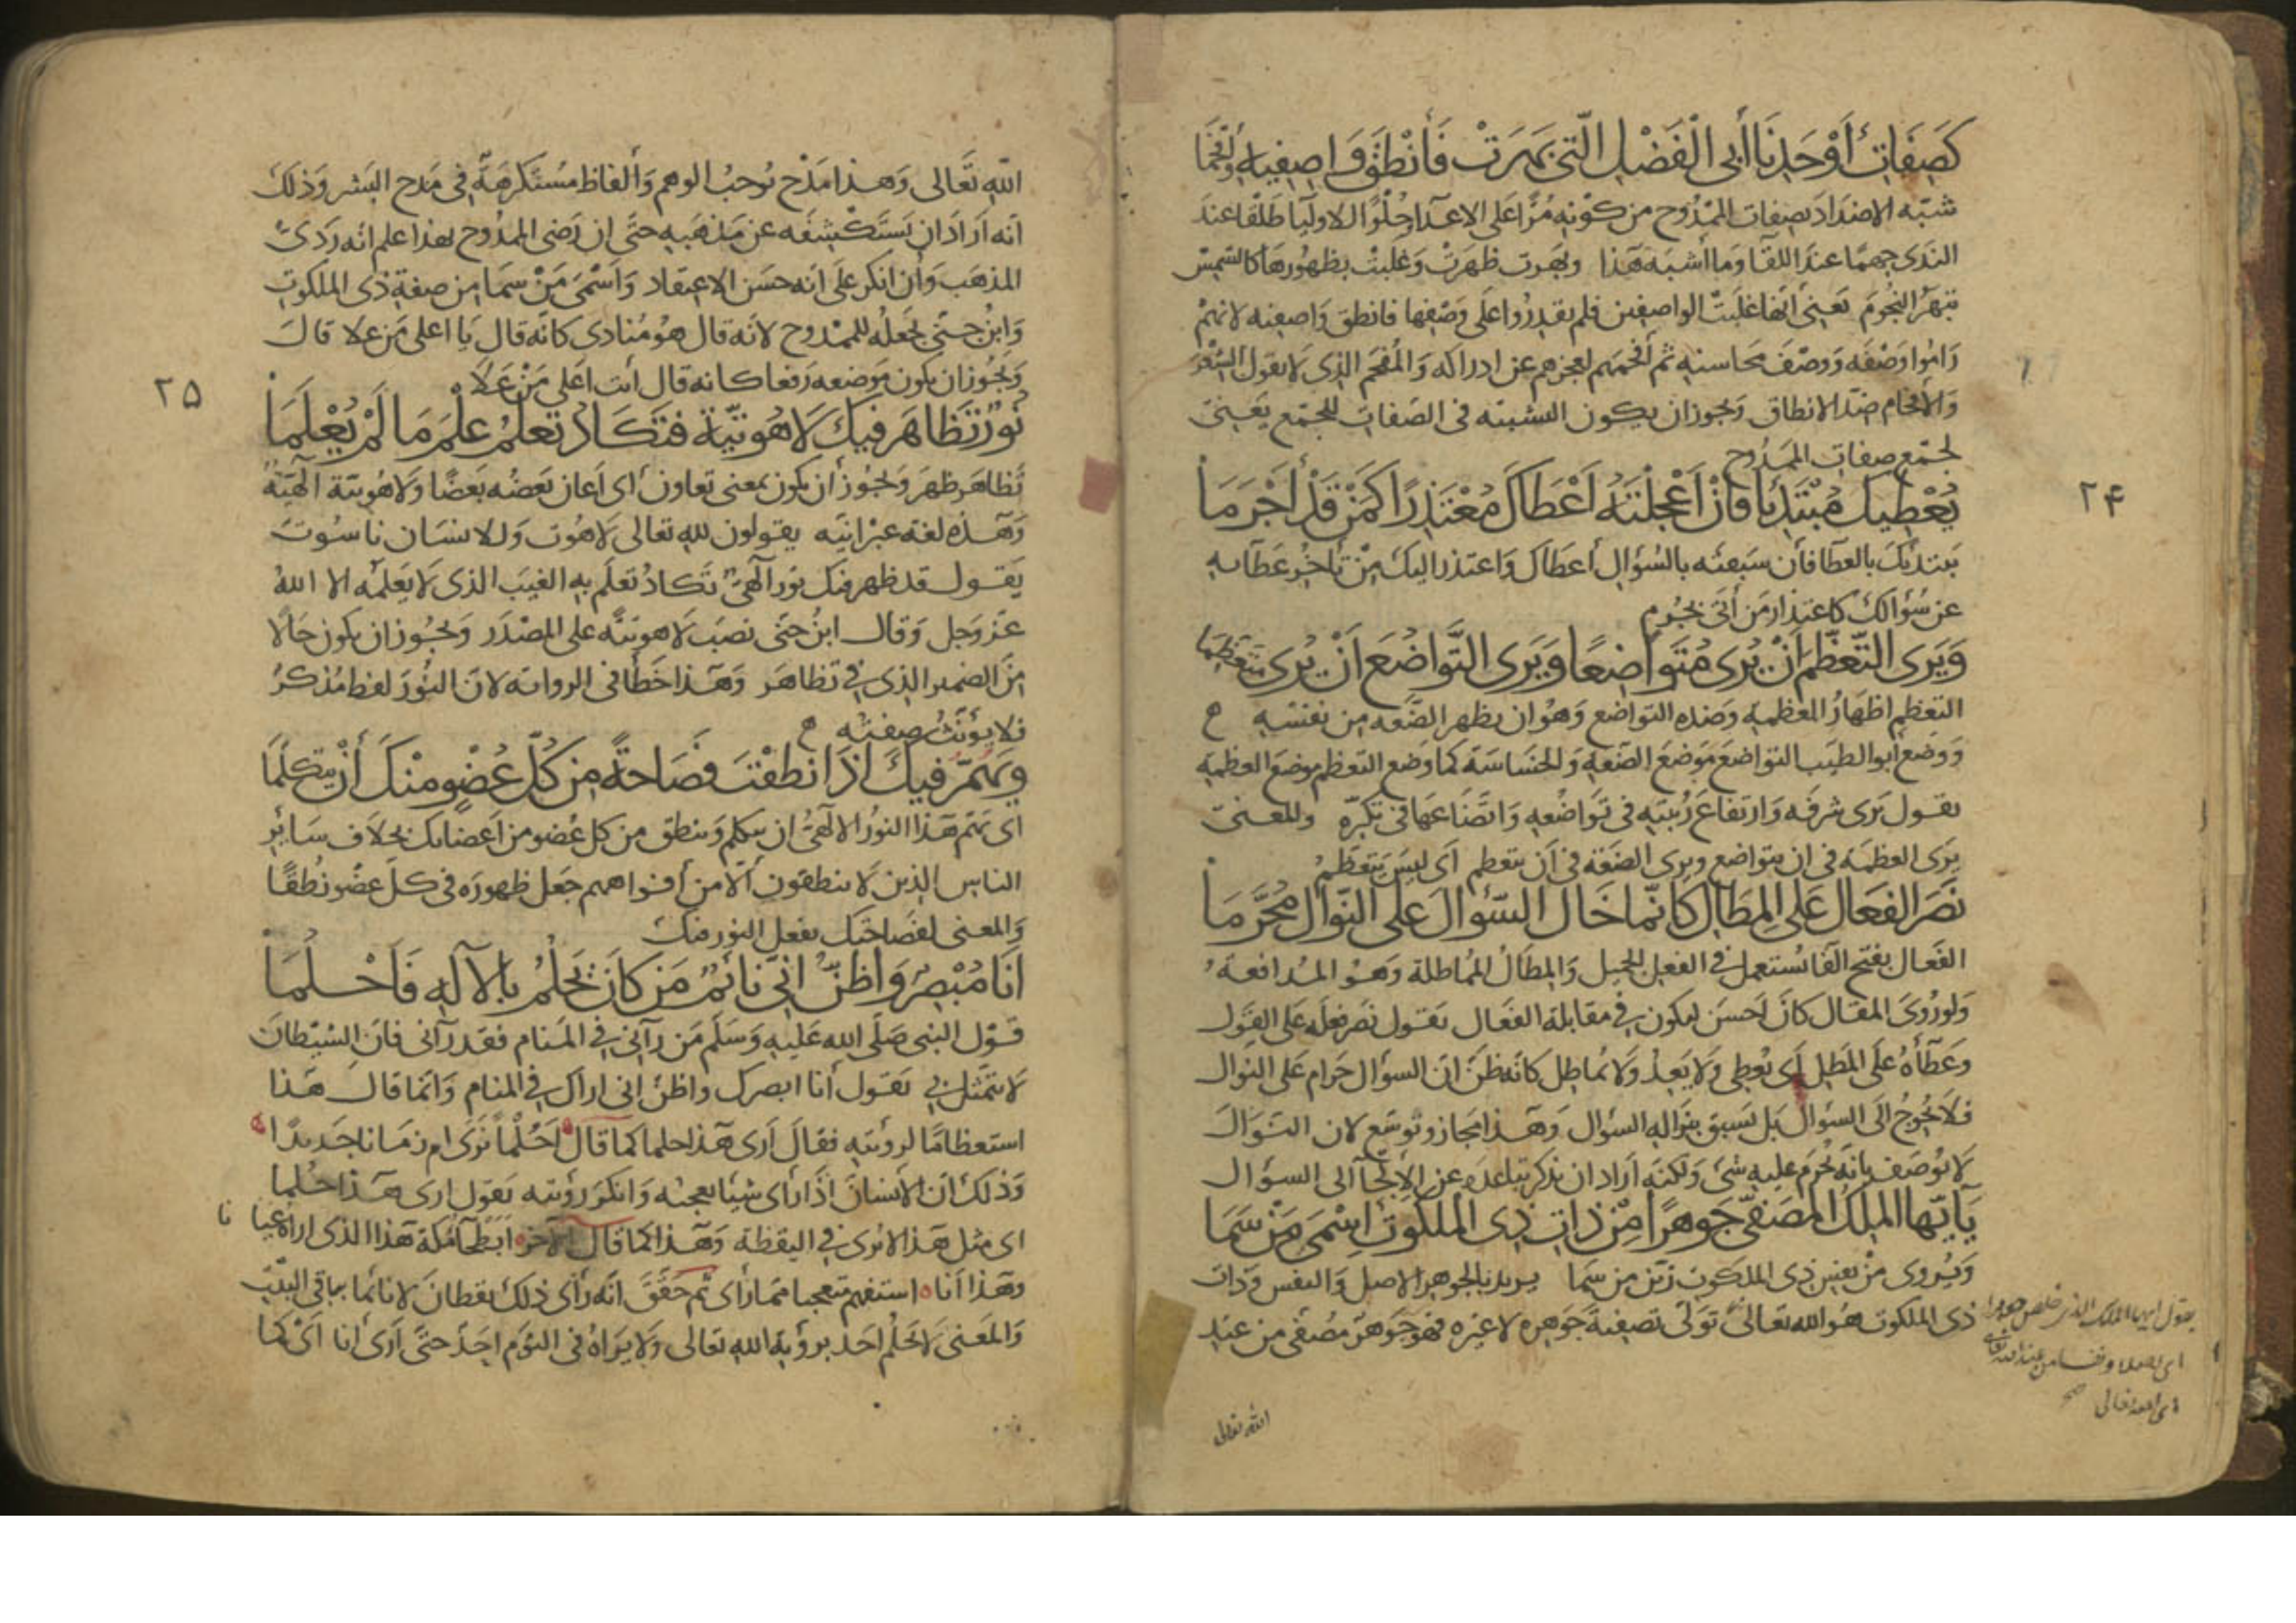 كَصِفَاتِ أَوْحَدِنَا أَبِي الْفَضْلِ الَّتِي بَهَرَتْ فَأَنْطَقَ وَاصِفِيهِ وَأَفْحَمَا
شبّه الاضداد بصفات الممدوح من كونه مُرًّا على الاعدآ وحُلْوًا للاوليآ طلقا عند
الندى جهمًا عند اللقآ وما أشبه هذا وبهرت ظهرت وغلبت بظهورها كالشمس
تبهر النجوم يعني أنها غلبت الواصفين فلم يقدروا على وصفها فانطق واصفيه لانهم
راموا وصفه ووصف محاسنه ثم أفحمهم لعجزهم عن ادراكه والمفحم الذي لا يقول الشعر
والافحام ضد الانطاق ويجوز ان يكون التشبيه في الصفات للجمع يعني
لجمع صفات الممدوح
٢۴
يُعْطِيكَ مُبْتَدِئًا فَإِنْ أَعْجَلْتَهُ أَعْطَاكَ مُعْتَذِرًا كَمَنْ قَدْ أَجْرَمَا
يبتديك بالعطآ فان سبقته بالسؤال أعطاك واعتذر اليك من تأخر عطآيه
عن سُؤالك كاعتذار من أتى بجُرم
وَيَرَى التَّعَظُّمَ أَنْ يُرَى مُتَوَاضِعًا وَيَرَى التَّوَاضُعَ أَنْ يُرَى مُتَعَظِّمَا
التعظم اظهار العظمة وضده التواضع وهو ان يظهر الضعة من نفسه
ووضع ابو الطيب التواضع موضع الضعة والخساسة كما وضع التعظم موضع العظمة
يقول يرى شرفه وارتفاع رُتبته في تواضعه واتضاعها في تكبره والمعنى
يرى العظمة في ان يتواضع ويرى الضعة في أن يتعظم أي ليس يتعظم
نَصَرَ الفَعَالَ عَلَى المِطَالِ كَأَنَّمَا خَالَ السُّؤَالَ عَلَى النَّوَالِ مُحَرَّمَا
الفَعَال بفتح الفا يُستعمل في الفعل الجميل والمطال المماطلة وهو المدافعة
ولو رُوي المقال كان احسن ليكون في مقابلة الفعال يقول نصر فعله على القول
وعطاه على المطل أي يعطي ولا يعد ولا يماطل كانه ظن ان السؤال حرام على النوال
فلا يحوج الى السؤال بل يسبق بنواله السؤال وهذا مجاز وتوسع لان النوال
لا يوصف بانه يحرم عليه شئ ولكنه اراد ان يذكر تباعده عن الالجآ الى السؤال
يَا أَيُّهَا المَلِكُ المُصَفَّى جَوْهَرًا مِنْ ذَاتِ ذِي المَلَكُوتِ اِسْمَى مَنْ سَمَا
ويُروى من نفس ذي الملكوت زين من سما يريد بالجوهر الاصل والنفس وذات
ذي الملكوت هو الله تعالى تولى تصفية جوهره لا غيره فهو جوهر مصفى من عند
يقول ايها الملك الذي خلص جوهرا
اى اصلا ونفسا من عند الله تعالى
اى الله تعالى
الله تعالى
الله تعالى وهذا مدح يوجب الوهم وألفاظ مستكرهة في مدح البشر وذلك
أنه أراد ان يستكشفه عن مذهبه حتى ان رضي الممدوح بهذا علم انه ردئ
المذهب وأن انكر على انه حسن الاعتقاد واسمى من سما من صفة ذي الملكوت
وابن جني يجعله للممدوح لانه قال هو منادى كانه قال يا اعلى من علا قال
ويجوز ان يكون موضعه رفعا كانه قال أنت اعلى من علا
٢۵
نُورٌ تَظَاهَرَ فِيكَ لَاهُوتِيَّةً فَتَكَادُ تَعْلَمُ عِلْمَ مَا لَمْ يُعْلَمَا
تظاهر ظهر ويجوز أن يكون بمعنى تعاون أي اعان بعضه بعضا ولاهوتية الهية
وهذه لغة عبرانيه يقولون لله تعالى لاهوت وللانسان ناسوت
يقول قد ظهر فيك نور الهي تكاد تعلم به الغيب الذي لا يعلمه الا الله
عز وجل وقال ابن جنى نصب لاهوتية على المصدر ويجوز ان يكون حالا
من الضمير الذي في تظاهر وهذا خطأ في الرواية لان النور لفظ مذكر
فلا يؤنث صفته
وَيَهُمُّ فِيكَ إِذَا نَطَقْتَ فَصَاحَةً مِنْ كُلِّ عُضْوٍ مِنْكَ أَنْ يَتَكَلَّمَا
اى يهم هذا النور الالهي ان يتكلم وينطق من كل عضو من اعضايك بخلاف ساير
الناس الذين لا ينطقون الا من أفواههم جعل ظهوره في كل عضو نطقا
والمعنى لفصاحتك يفعل النور فيك
أَنَا مُبْصِرٌ وَأَظُنُّ أَنِّي نَائِمٌ مَنْ كَانَ يَحْلُمُ بِالْإِلَهِ فَأَحْلُمَا
قول النبي صلى الله عليه وسلم من رآنى في المنام فقد رآنى فان الشيطان
لا يتمثل بي يقول أنا ابصرك واظن انى اراك في المنام وانما قال هذا
استعظامًا لرويته فقال أرى هذا حلما كما قال احلما نرى ام زمانا جديدا
وذلك ان الانسان اذا رأى شيا يعجبه وانكر رؤيته يقول ارى هذا حلما
اى مثل هذا لا يرى في اليقظة وهذا كما قال الآخر أبطحآ مكة هذا الذي اراه عيا نا
وهذا أنا استفهم متعجبا مما رأى ثم حقق انه رأى ذلك يقظان لا نائما بباقي البيت
والمعنى لا يحلم احد بروية الله تعالى ولا يراه في النوم احد حتى أرى انا اى كما